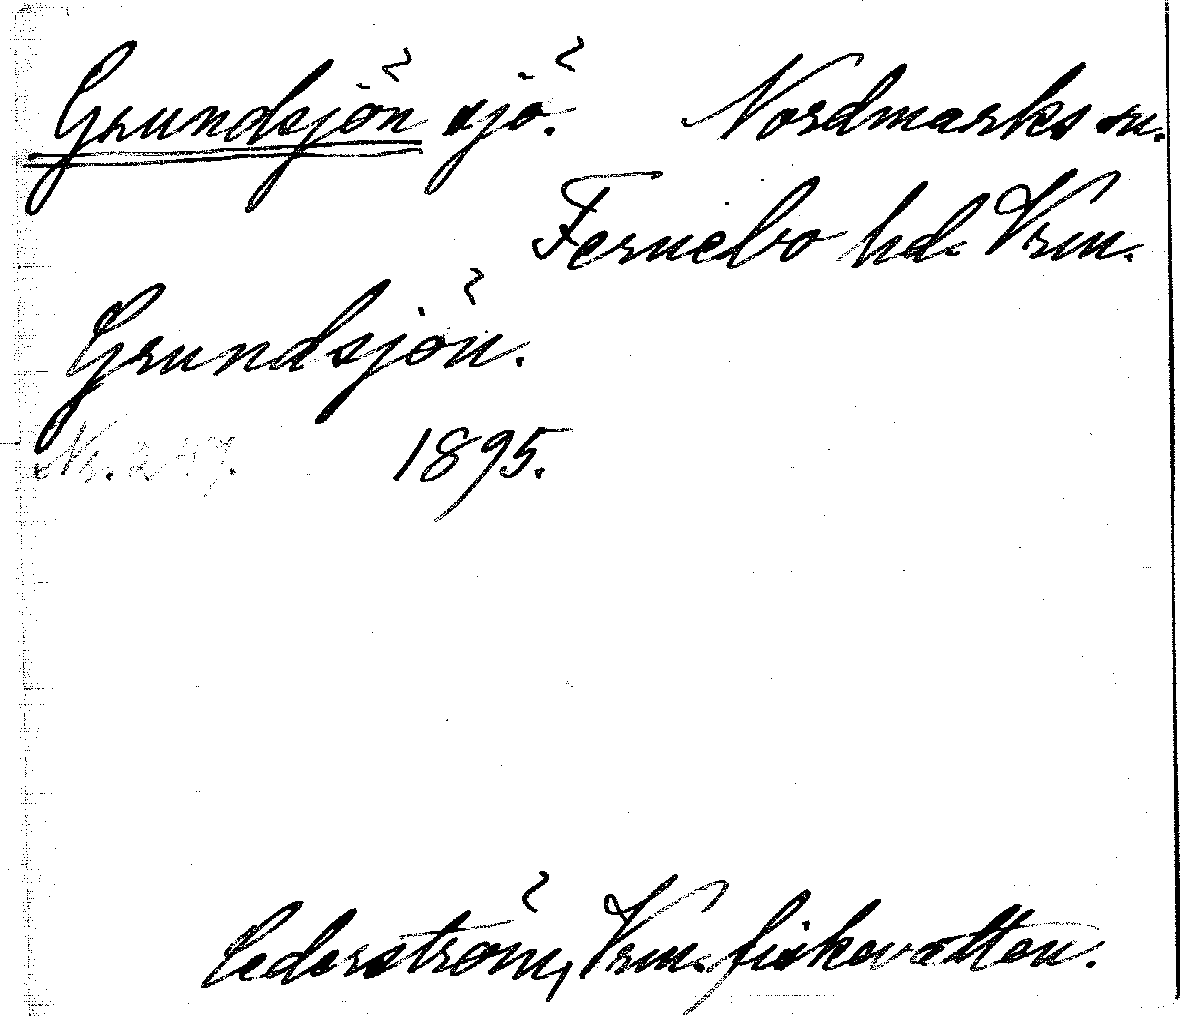 Grundsjön sjö. Nordmarks sn.
Fernebo hd. Vrm.
Grundsjön.
Nr. 1895.
Cederström, Vrm. fiskevatten.